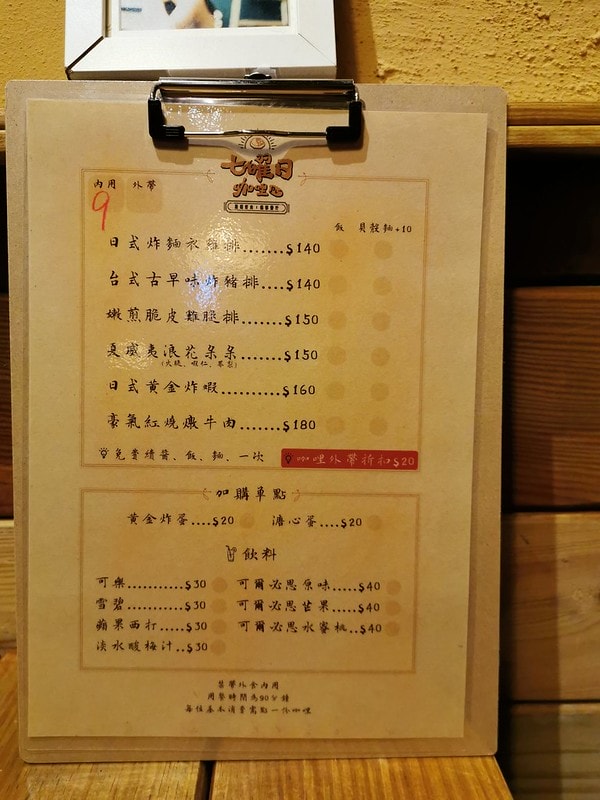 七曜日
咖哩
內用 外帶
9
飯 貝殼麵+10
日式炸麵衣雞排......$140
台式古早味炸豬排.....$140
嫩煎脆皮雞腿排.......$150
夏威夷浪花朵朵.......$150
(火腿、蝦仁、鳳梨)
日式黃金炸蝦..........$160
豪氣紅燒燉牛肉........$180
免費續醬、飯、麵、一次
咖哩外帶折扣$20
加購單點
黃金炸蛋....$20 溏心蛋....$20
飲料
可樂...........$30 可爾必思原味.....$40
雪碧...........$30 可爾必思芒果.....$40
蘋果西打.....$30 可爾必思水蜜桃..$40
淡水酸梅汁..$30
禁帶外食內用
用餐時間為90分鐘
每位基本消費需點一份咖哩